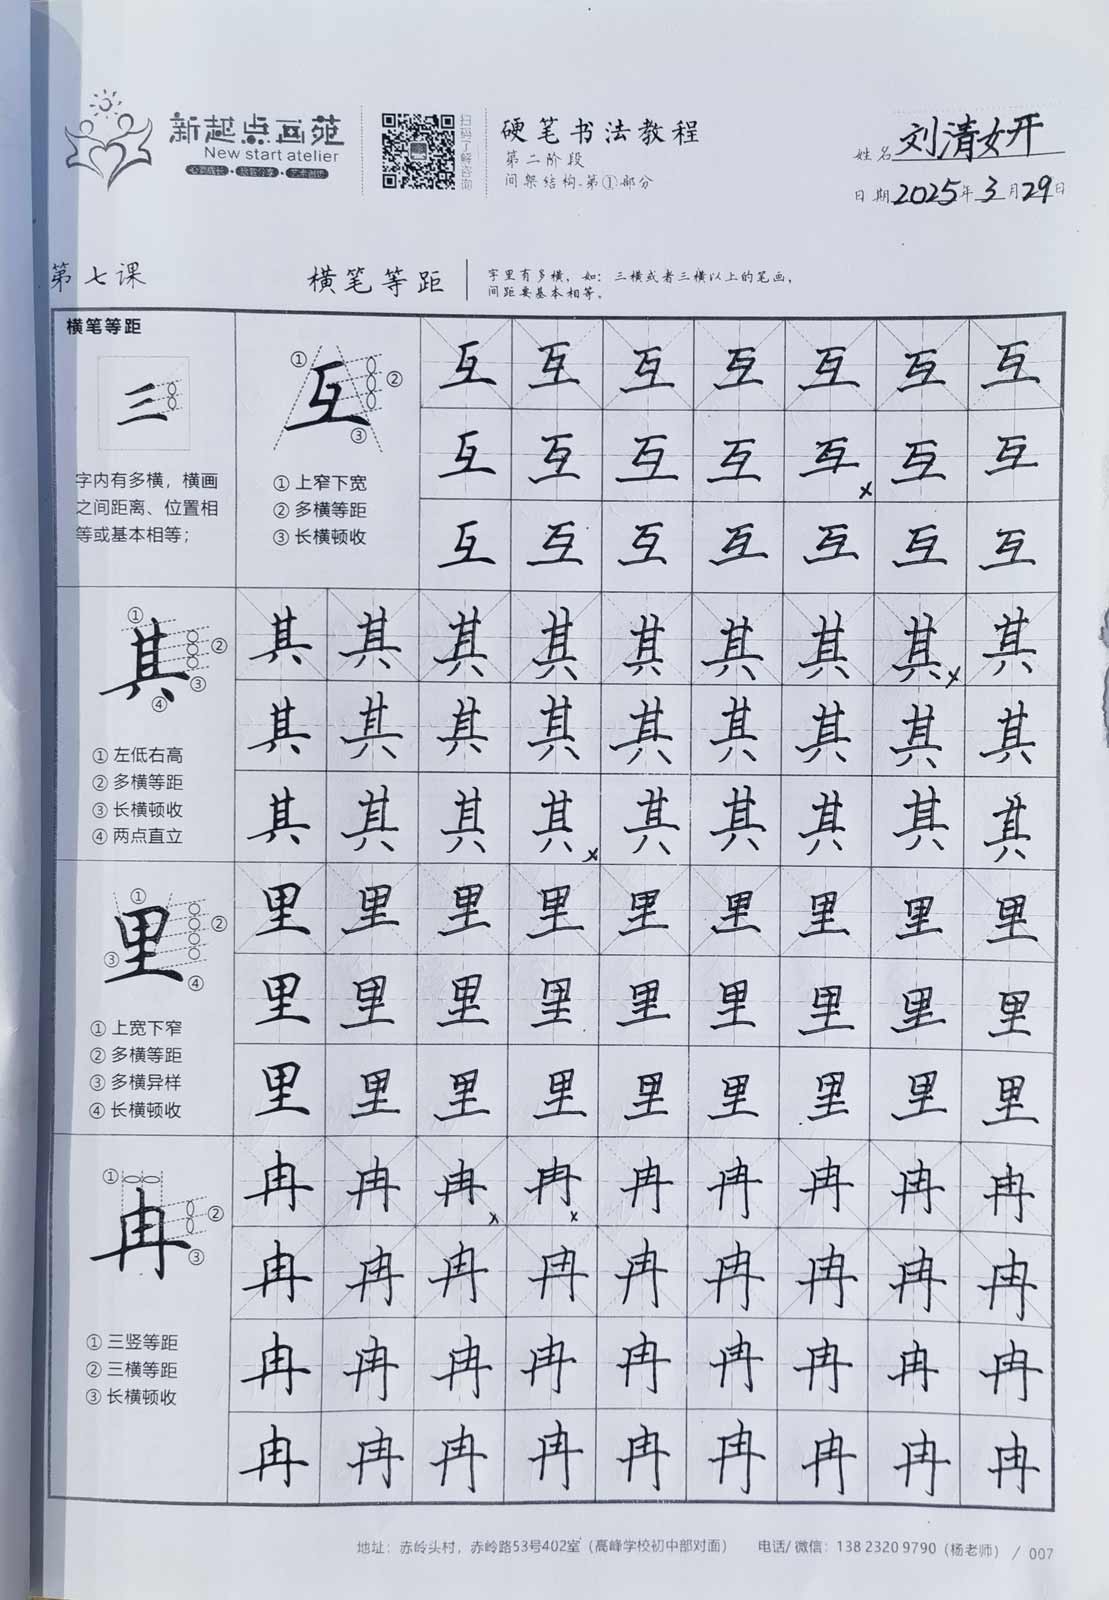 新起点画苑
New start atelier
扫码了解咨询
硬笔书法教程
第二阶段
间架结构.第①部分
姓名 刘清妍
日期 2025年3月29日
第七课
横笔等距
字里有多横，如：三横或者三横以上的笔画，
间距要基本相等。
横笔等距
三
字内有多横，横画
之间距离、位置相
等或基本相等；
① 互 ②
③
① 上窄下宽
② 多横等距
③ 长横顿收
互 互 互 互 互 互 互
互 互 互 互 互 x 互 互
互 互 互 互 互 互 互
① 其 ②
③
④
① 左低右高
② 多横等距
③ 长横顿收
④ 两点直立
其 其 其 其 其 其 其 其 x 其
其 其 其 其 其 其 其 其 其
其 其 其 其 x 其 其 其 其 其
① 里 ②
③
④
① 上宽下窄
② 多横等距
③ 多横异样
④ 长横顿收
里 里 里 里 里 里 里 里 里
里 里 里 里 里 里 里 里 里
里 里 里 里 里 里 里 里 里
① 冉 ②
③
① 三竖等距
② 三横等距
③ 长横顿收
冉 冉 冉 x 冉 x 冉 冉 冉 冉 冉
冉 冉 冉 冉 冉 冉 冉 冉 冉
冉 冉 冉 冉 冉 冉 冉 冉 冉
冉 冉 冉 冉 冉 冉 冉 冉 冉
地址：赤岭头村，赤岭路53号402室（高峰学校初中部对面） 电话/ 微信：138 2320 9790（杨老师） / 007